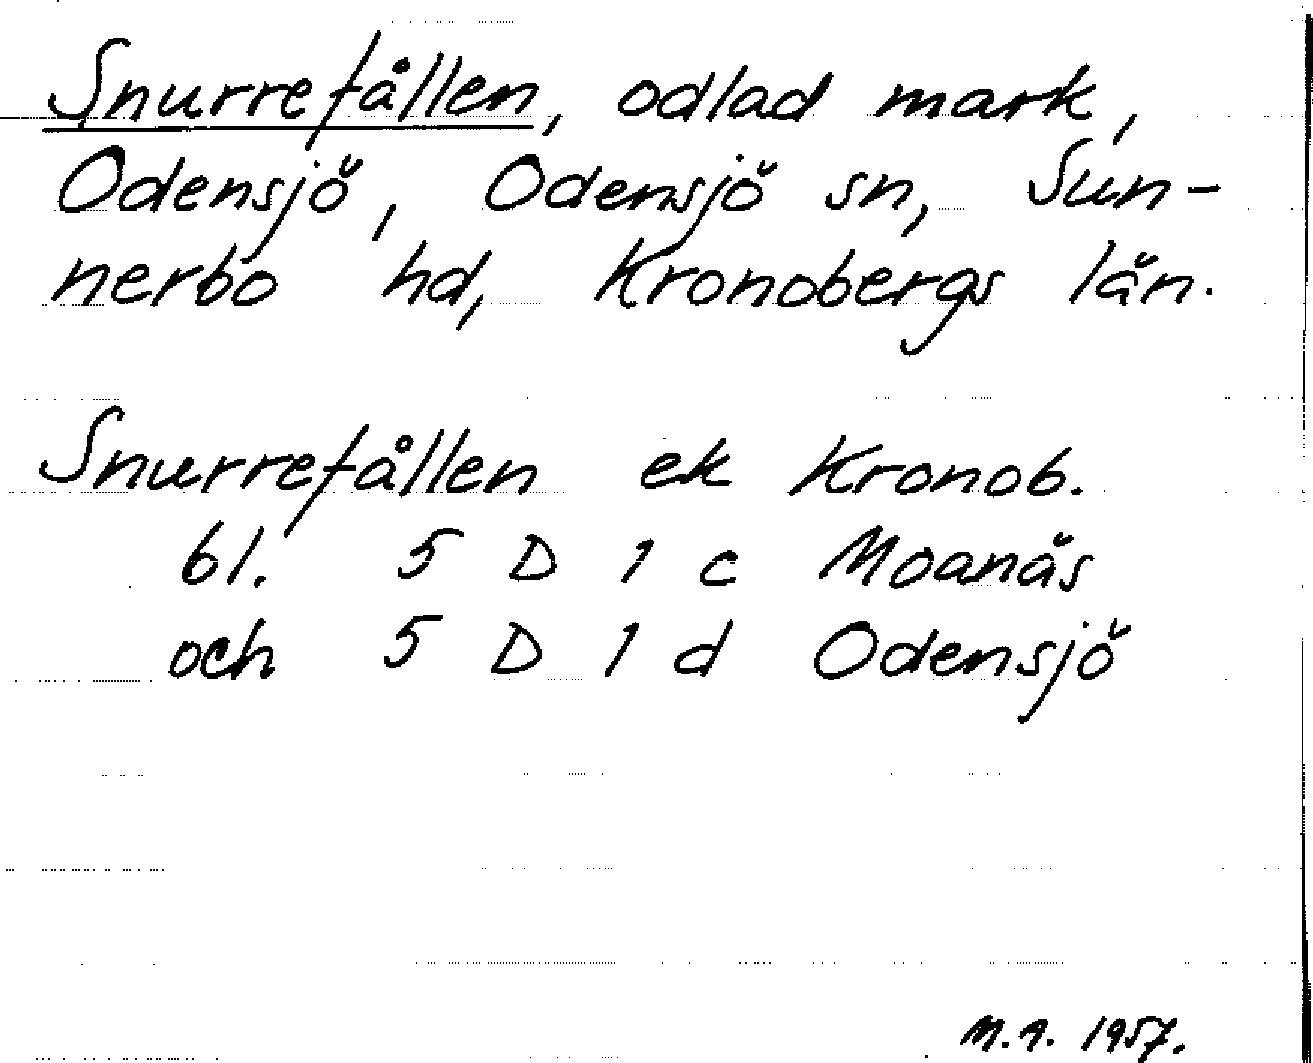 Snurrefållen, odlad mark,
Odensjö, Odensjö sn, Sun-
nerbo hd, Kronobergs län.
Snurrefållen ek Kronob.
bl. 5 D 1 c Moanäs
och 5 D 1 d Odensjö
M.A. 1957.